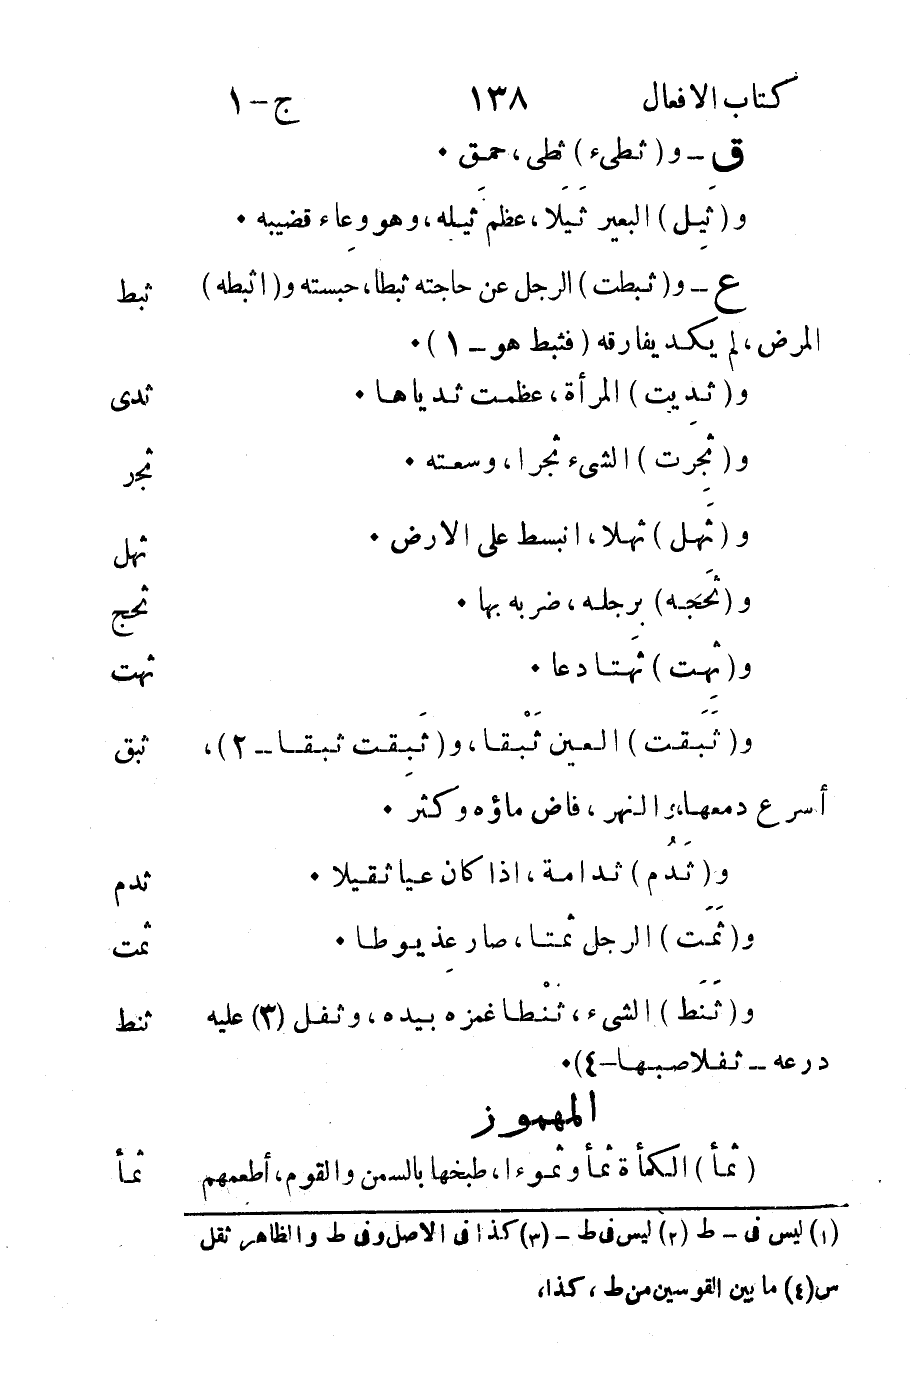 كتاب الافعال ١٣٨ ج-١
ق - و ( ثطىء ) ثطى ، حمق •
و ( ثَيِل ) البعير ثَيَلا ، عظم ثِيَله ، وهو وعاء قضيبه •
ع - و ( ثبطت ) الرجل عن حاجته ثبطا ، حبسته و ( اثبطه ) ثبط
المرض ، لم يكد يفارقه ( فثبط هو - ١ ) •
و ( ثدِيت ) المرأة ، عظمت ثدياها • ثدى
و ( ثجِرت ) الشىء ثجرا ، وسعته • ثجر
و ( ثَهل ) ثهلا ، انبسط على الارض • ثهل
و ( ثَحَجه ) برجله ، ضربه بها • ثحج
و ( ثهِت ) ثَهتا دعا • ثهت
و ( ثَبَقت ) العين ثَبْقا ، و ( ثَبِقت ثبقا - ٢ ) ، ثبق
أسرع دمعها ، و النهر ، فاض ماؤه وكثر •
و ( ثَدُم ) ثدامة ، اذا كان عيا ثقيلا • ثدم
و ( ثَمَت ) الرجل ثمتا ، صار عِذيوطا • ثمت
و ( ثَنَط ) الشىء ، ثنْطا غمزه بيده ، وثفل (٣) عليه ثنط
درعه - ثفلا صبها - ٤) •
المهموز
( ثمأ ) الكمأة ثمأ وثموءا ، طبخها بالسمن والقوم ، أطعمهم ثمأ
(١) ليس فى - ط (٢) ليس فى ط - (٣) كذا فى الاصل وفى ط والظاهر ثقل
س (٤) ما بين القوسين من ط ، كذا ،